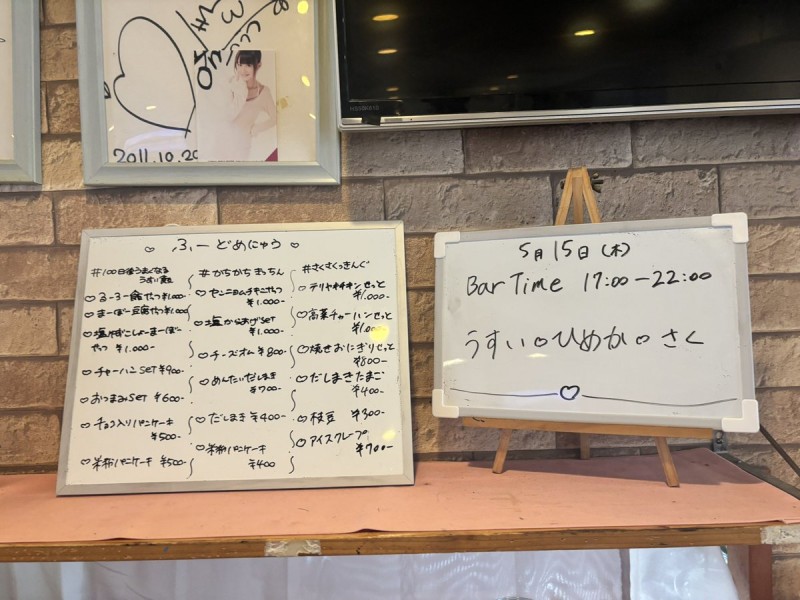 2011.10.20
Hisense
♡ ふーどめにゅう ♡
#100日後うまくなる
うすい食堂
♡るーろー飯やつ¥1,000-
♡まーぼー豆腐やつ¥1,000-
♡塩ゆずこしょーまーぼー
やつ ¥1,000-
♡チャーハンSET ¥900-
♡おつまみSET ¥600-
♡チョコ入りパンケーキ
¥500-
♡米粉パンケーキ ¥500-
#かちかちきっちん
♡ヤンニョムチキンやつ
¥1,000-
♡塩からあげSET
¥1,000-
♡チーズオム ¥800-
♡めんたいだしまき
¥700-
♡だしまき ¥400-
♡米粉パンケーキ
¥400
#さくさくっきんぐ
♡テリヤキチキンせっと
¥1,000-
♡高菜チャーハンせっと
¥1,000-
♡焼きおにぎりせっと
¥800-
♡だしまきたまご
¥400-
♡枝豆 ¥300-
♡アイスクレープ
¥700-
5月15日(木)
Bar Time 17:00-22:00
うすい♡ひめか♡さく